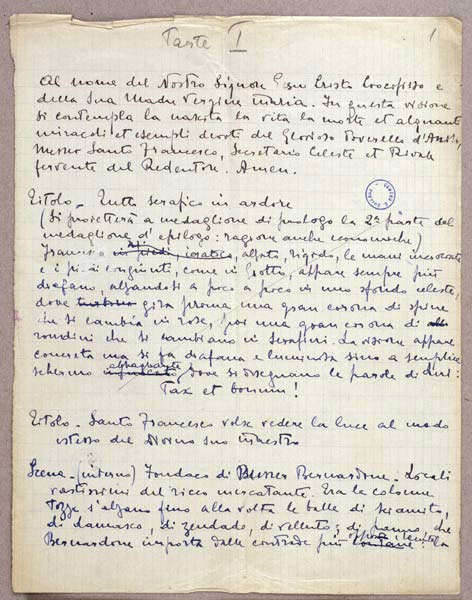 Parte I
1
Al nome del Nostro Signore Gesu Cristo Crocefisso e
della Sua Madre Vergine Maria. In questa visione
si contempla la nascita la vita la morte et alquanti
miracoli et esempli devoti del Glorioso Poverello d'Assisi,
Messer Santo Francesco, Secretario Celeste et
fervente del Redentore. Amen.
Titolo - Tutto serafico in ardore
(Si proietterà a medaglione di prologo la 2ª parte del
medaglione d'epilogo: ragione anche economiche)
Francesco in piedi, ieratico, alzato, rigido, le mani
e i piedi congiunti, come in Giotto, appare sempre più
diafano, alzandosi a poco a poco in uno sfondo celeste,
dove gira prima una gran corona di spine
che si cambia in rose, poi una gran corona di
rondini che si cambiano in serafini. La visione appare
concreta ma si fa diafana e luminosa sino a semplice
schermo abbagliante, dove si disegnano le parole di Lui:
Pax et bonum!
Titolo - Santo Francesco volse vedere la luce al modo
istesso del Divino suo Maestro
Scena - (interno) Fondaco di Messer Bernardone. Locali
vastissimi del ricco mercatante. Tra le colonne
tozze s'alzano fino alla volta le balle di sciamito,
di damasco, di zendado, di velluto; di panno che
Bernardone importa dalle contrade più lontane: